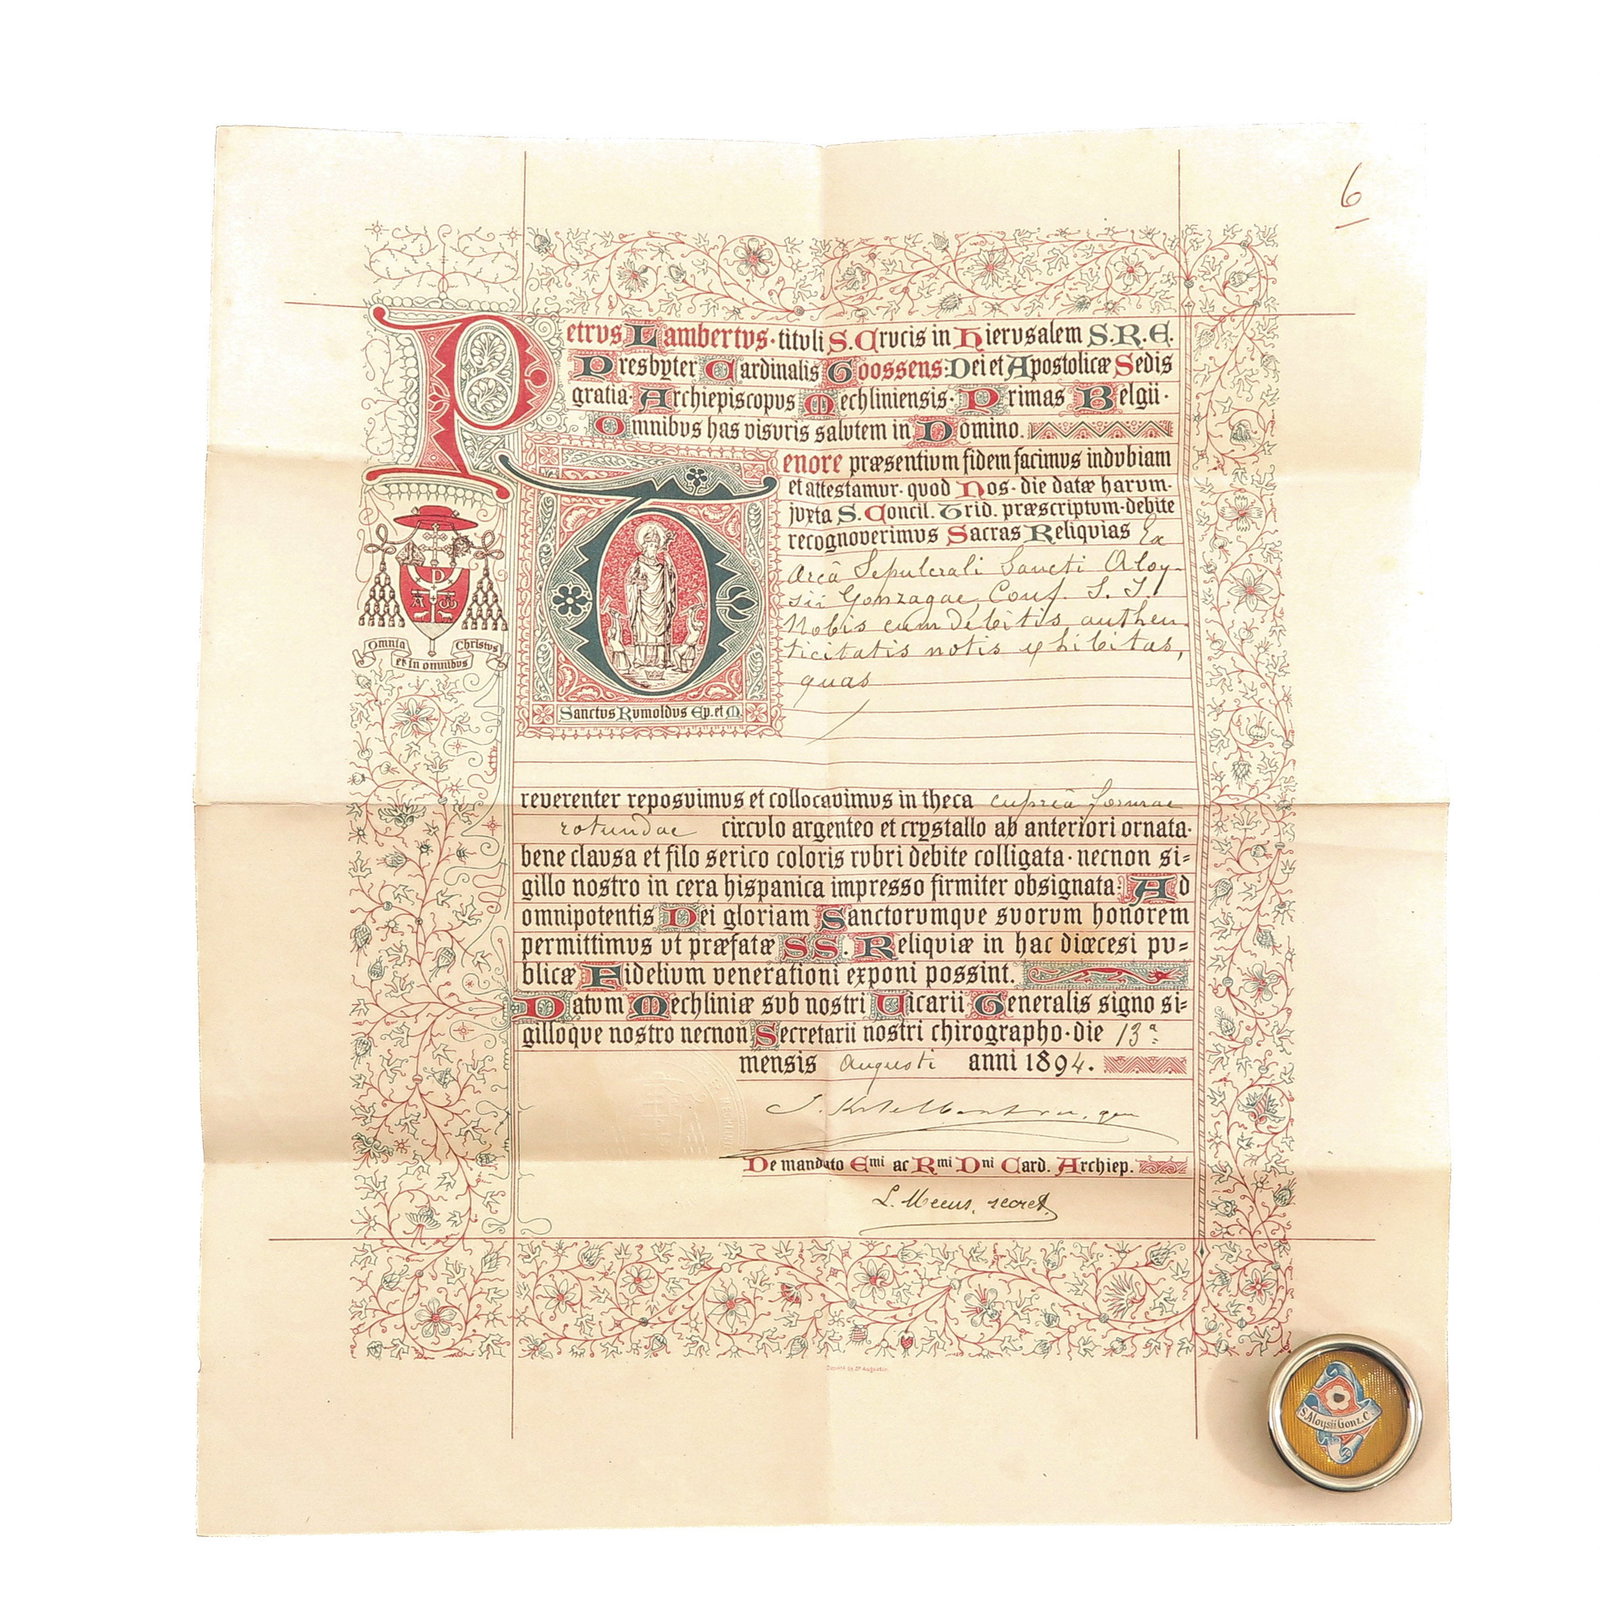 6
Petrvs Lambertvs · titvli S. Crvcis in Hiervsalem S. R. E.
Presbyter Cardinalis Goossens: Dei et Apostolicæ Sedis
gratia · Archiepiscopvs Mechliniensis · Primas Belgii ·
Omnibvs has visvris salvtem in Domino.
Tenore præsentivm fidem facimvs indvbiam
et attestamvr · qvod Nos · die datæ harvm ·
jvxta S. Concil. Trid. præscriptvm · debite
recognoverimvs Sacras Reliqvias Ex
arcâ Sepulcrali Sancti Aloy-
sii Gonzagae, Conf. S. J.
Nobis cum debitis authen
ticitatis notis exhibitas,
quas
Omnia Christvs
et in omnibvs
Sanctvs Rvmoldvs Ep. et M.
reverenter reposvimvs et collocavimvs in theca cupreâ formae
rotundae circvlo argenteo et crystallo ab anteriori ornata ·
bene clavsa et filo serico coloris rvbri debite colligata · necnon si=
gillo nostro in cera hispanica impresso firmiter obsignata: Ad
omnipotentis Dei gloriam Sanctorvmqve svorvm honorem
permittimvs vt præfatæ SS. Reliqviæ in hac diœcesi pv=
blicæ Fidelivm venerationi exponi possint.
Datvm Mechliniæ svb nostri Vicarii Generalis signo si=
gilloqve nostro necnon Secretarii nostri chirographo · die 13ª
mensis Augusti anni 1894.
De mandato Emi ac Rmi Dni Card. Archiep.
L. Mecus, secret.
Société de St Augustin.
S. Aloysii Gonz. C.